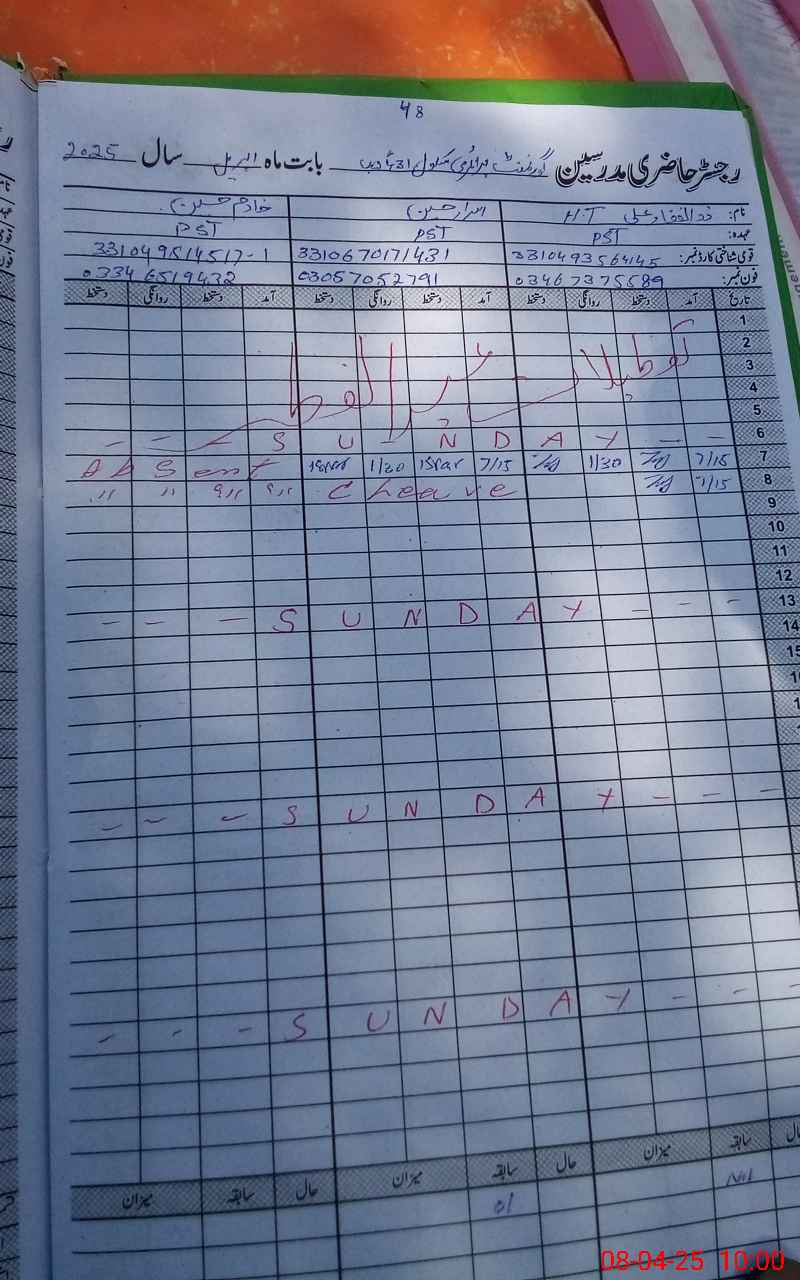 48
رجسٹر حاضری مدرسین گورنمنٹ پرائمری سکول بابت ماہ اپریل سال 2025
نام: ذوالفقار علی H.T اسرار حسین خادم حسین
عہدہ: PST PST PST
قومی شناختی کارڈ نمبر: 3310493564145 3310670171431 331049514517-1
فون نمبر: 03467375589 03057052791 03346519432
تاریخ آمد دستخط روانگی دستخط آمد دستخط روانگی دستخط آمد دستخط روانگی دستخط
1
2
3
4
5
6 - - - S U N D A Y - -
7 7/15 1/30 7/15 1/30 Absent
8 7/15 C Leave " " " "
9
10
11
12
13 - - - S U N D A Y - - -
14
15
- - - S U N D A Y - - -
- - - S U N D A Y - - -
حال سابقہ میزان حال سابقہ میزان حال سابقہ میزان
Nil 01
08-04-25 10:00